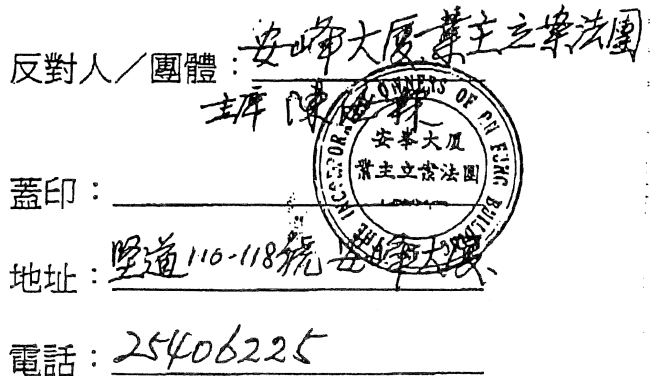 反對人／團體：安峰大厦業主立案法團
主席 陳
蓋印：
THE INCORPORATED OWNERS OF ON FUNG BUILDING
安峯大厦
業主立案法團
地址：堅道116-118號安峰大厦
電話：25406225